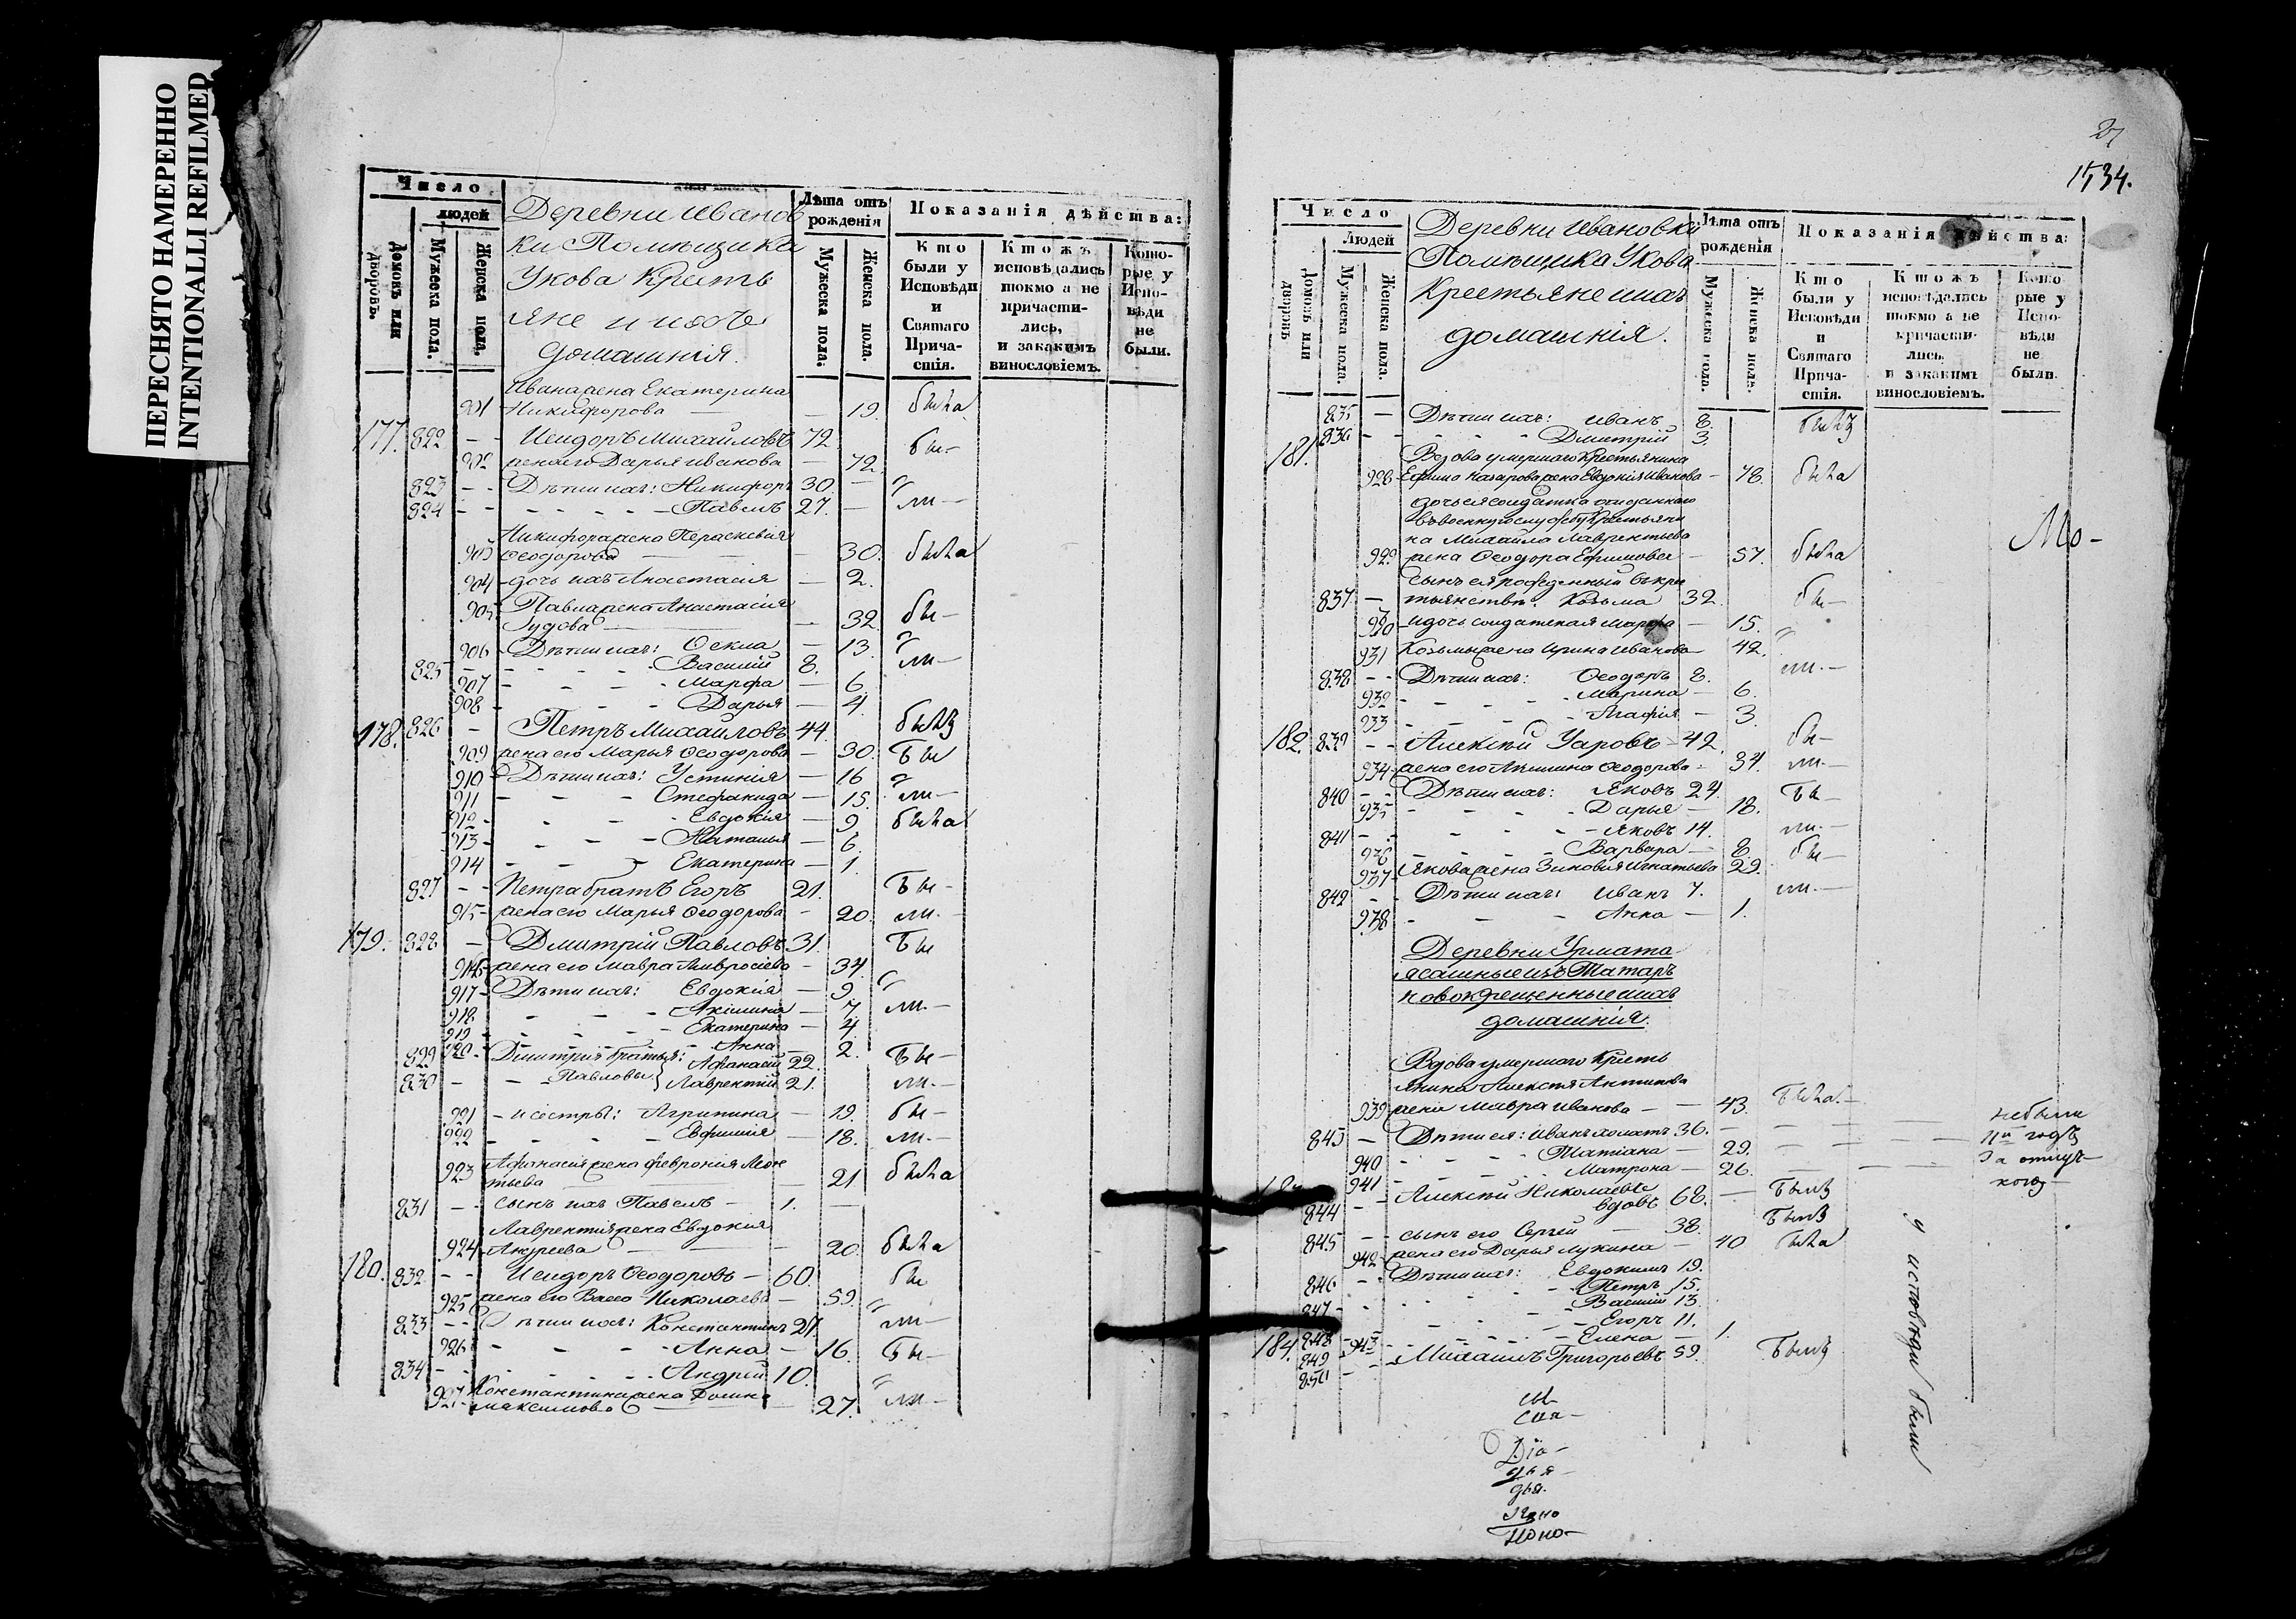 ПЕРЕСНЯТО НАМЕРЕННО
INTENTIONALLI REFILMED
Число
людей
Домовъ или дворовъ.
Мужеска пола.
Женска пола.
Деревни Иванов
ки Помѣщика
Укова Кресть
яне и ихъ
домашнія.
Лѣта отъ рожденія
Мужеска пола.
Женска пола.
Показанія дѣйства:
Кто были у Исповѣди и Святаго Прича-стія.
Ктожъ исповѣдались токмо а не причасти-лись, и закакимъ винословіемъ.
Кото-рые у Испо-вѣди не были.
Ивана жена Екатерина
901 Никифорова — 19. была
177. 822 Исидоръ Михайловъ 72. бы-
902 жена его Дарья Иванова — 72.
823 Дѣти ихъ: Никифоръ 30 —
824 Павелъ 27. — ли-
Никифора жена Параскевія
903 Ѳеодорова — 30. была
904 дочь ихъ Анастасія — 2.
Павла жена Анастасія
905 — 32. бы-
906 Дѣти ихъ: — 13
825 Василій 8. ли-
907 Марфа — 6.
908 Дарья — 4.
178. 826 Петръ Михайловъ 44. былъ
909 жена его Марья Ѳеодорова — 30. бы
910 Дѣти ихъ: Устинія — 16
911 Стефанида — 15. ли-
912 Евдокія — 9 была
913 Наталья — 6.
914 Екатерина — 1.
827 Петра братъ Егоръ 21. бы-
915 жена его Марья Ѳеодорова — 20. ли-
179. 828 Дмитрій Павловъ 31. бы
916 жена его Мавра Амвросіева — 34.
917 Дѣти ихъ: Евдокія — 9
918 Акилина — 7. ли-
919 Екатерина — 4
920 Анна — 2.
829 Дмитрія братья: Афанасій 22. бы-
830 Павловы Лаврентій 21. ли-
921 и сестры: Агрипина — 19. бы-
922 Евфимія — 18. ли-
Афанасія жена Феврония
923 тьева — 21 была
831 сынъ ихъ Павелъ — 1. —
Лаврентія жена Евдокия
924 Андреева — 20. была
180. 832 Исидоръ Ѳеодоровъ — 60. бы
925 жена его Васса Николаева — 59.
833 Дѣти ихъ: Константинъ 27. ли-
926 Анна — 16. бы-
834 Андрей 10.
Константина жена
927 Максимова — 27. ли-
27
1534.
Число
Людей
Домовъ или дворовъ
Мужеска пола.
Женска пола.
Деревни Ивановки
Помѣщика Укова
Крестьяне и ихъ
домашнія.
Лѣта отъ рожденія
Мужеска пола.
Женска пола.
Показанія дѣйства:
Кто были у Исповѣди и Святаго Прича-стія.
Ктожъ исповѣдались токмо а не причасти-лись, и закакимъ винословіемъ.
Кото-рые у Испо-вѣди не были.
835 — Дѣти ихъ: Иванъ 8. былъ
836 Дмитрій 3.
181. Вдова умершаго Крестьянина
928 Ефима Назарова жена Евдокія Иванова — 78. была
дочь ея солдатка отданнаго
въ военную службу Крестьяни
на Михаила Лаврентьева
929 жена Ѳеодора Ефимова — 57. была
Мо-
сынъ ея рожденный въ кре
837 — тьянствѣ: Козьма 32. бы-
930 и дочь солдатская Марфа — 15.
931 Козьмы жена Ирина Иванова 42.
838 Дѣти ихъ: Ѳеодоръ 8. ли.-
932 Марина — 6.
933 Агафія — 3.
182. 839 Алексѣй Уаровъ — 42. бы-
934 жена его Акилина Ѳеодорова — 34. ли.-
840 Дѣти ихъ: Яковъ 24. бы-
935 Дарья — 18.
841 Яковъ 14. ли.-
936 Варвара — 8. бы-
937 Якова жена Зиновія Игнатьева 29.
842 Дѣти ихъ: Иванъ 7. ли.-
938 Анна — 1.
Деревни Урмата
ясашные изъ Татаръ
новокрещенные и ихъ
домашнія.
Вдова умершаго Кресть
янина Алексѣя Антипова
939 жена Мавра Иванова — 43. была.-
843 — Дѣти ея: Иванъ холостъ 36. —
940 Татіана — 29.
941 Матрона — 26.
не были
й годъ
за отлуч-
кою
Алексѣй Николаевъ
844 вдовъ 68. — былъ
845 сынъ его Сергѣй — 38. былъ
942 жена его Дарья Лукина — 40 была
846 Дѣти ихъ: Евдокимъ 19.
847 Петръ 15.
848 Василій 13.
849 Егоръ 11.
943 Елена — 1.
184. 850 Михаилъ Григорьевъ 59. былъ
у исповѣди были
Діа-